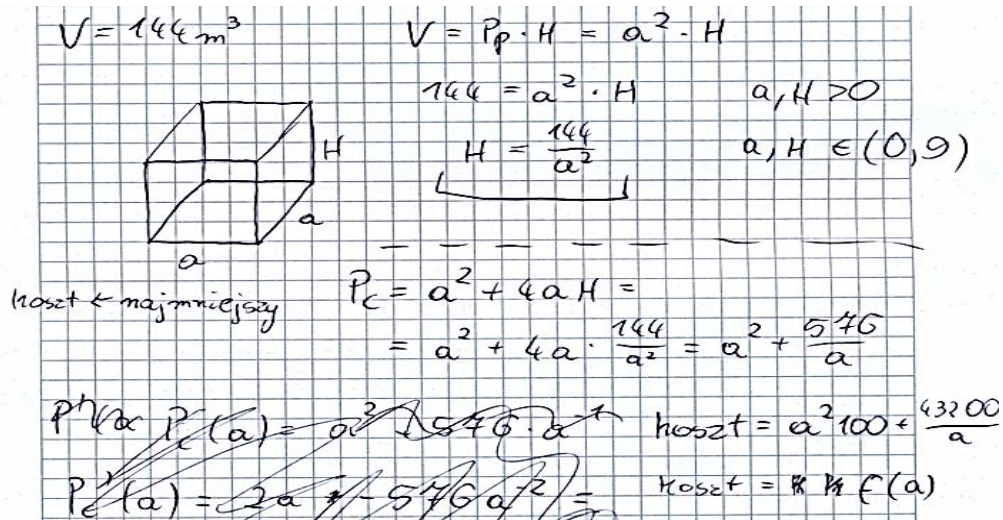 V = 144 m³
V = Pp · H = a² · H
144 = a² · H
a, H > 0
H = 144/a²
a, H ∈ (0, 9)
H
a
a
koszt ← najmniejszy
Pc = a² + 4aH =
= a² + 4a · 144/a² = a² + 576/a
Pc(a) = a² + 576 · a⁻¹
koszt = a² 100 + 43200/a
Pc'(a) = 2a - 576 a⁻² =
koszt = f(a)